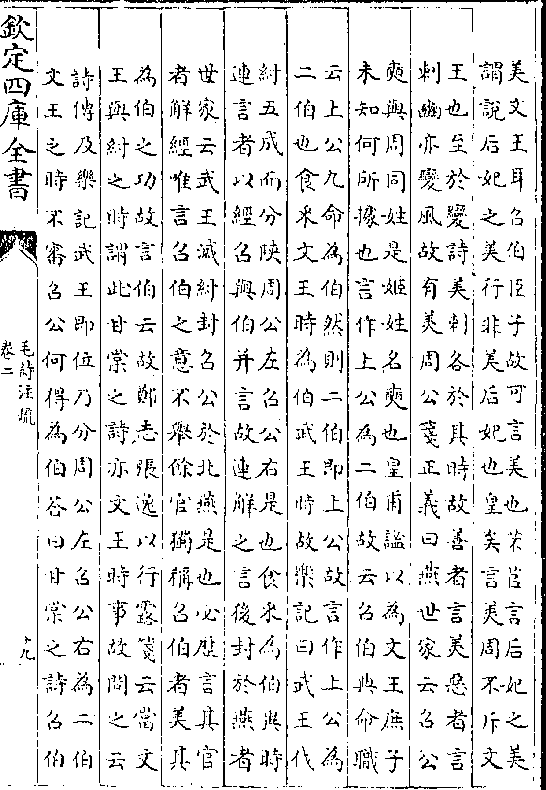 美文王耳召伯臣子故可言美也芣苢言后妃之美
謂說后妃之美行非美后妃也皇矣言美周不斥文
王也至於變詩美刺各於其時故善者言美惡者言
刺豳亦變風故有美周公箋正義曰燕世家云召公
奭與周同姓是姬姓名奭也皇甫謐以為文王庶子
未知何所據也言作上公為二伯故云召伯典命職
云上公九命為伯然則二伯即上公故言作上公為
二伯也食采文王時為伯武王時故樂記曰武王伐
紂五成而分陝周公左召公右是也食采為伯異時
連言者以經召與伯并言故連解之言後封於燕者
世家云武王滅紂封召公於北燕是也必歷言其官
者解經唯言召伯之意不舉餘官獨稱召伯者美其
為伯之功故言伯云故鄭志張逸以行露箋云當文
王與紂之時謂此甘棠之詩亦文王時事故問之云
詩傳及樂記武王即位乃分周公左召公右為二伯
文王之時不審召公何得為伯答曰甘棠之詩召伯
欽定四庫全書
毛詩注疏
卷二
十九